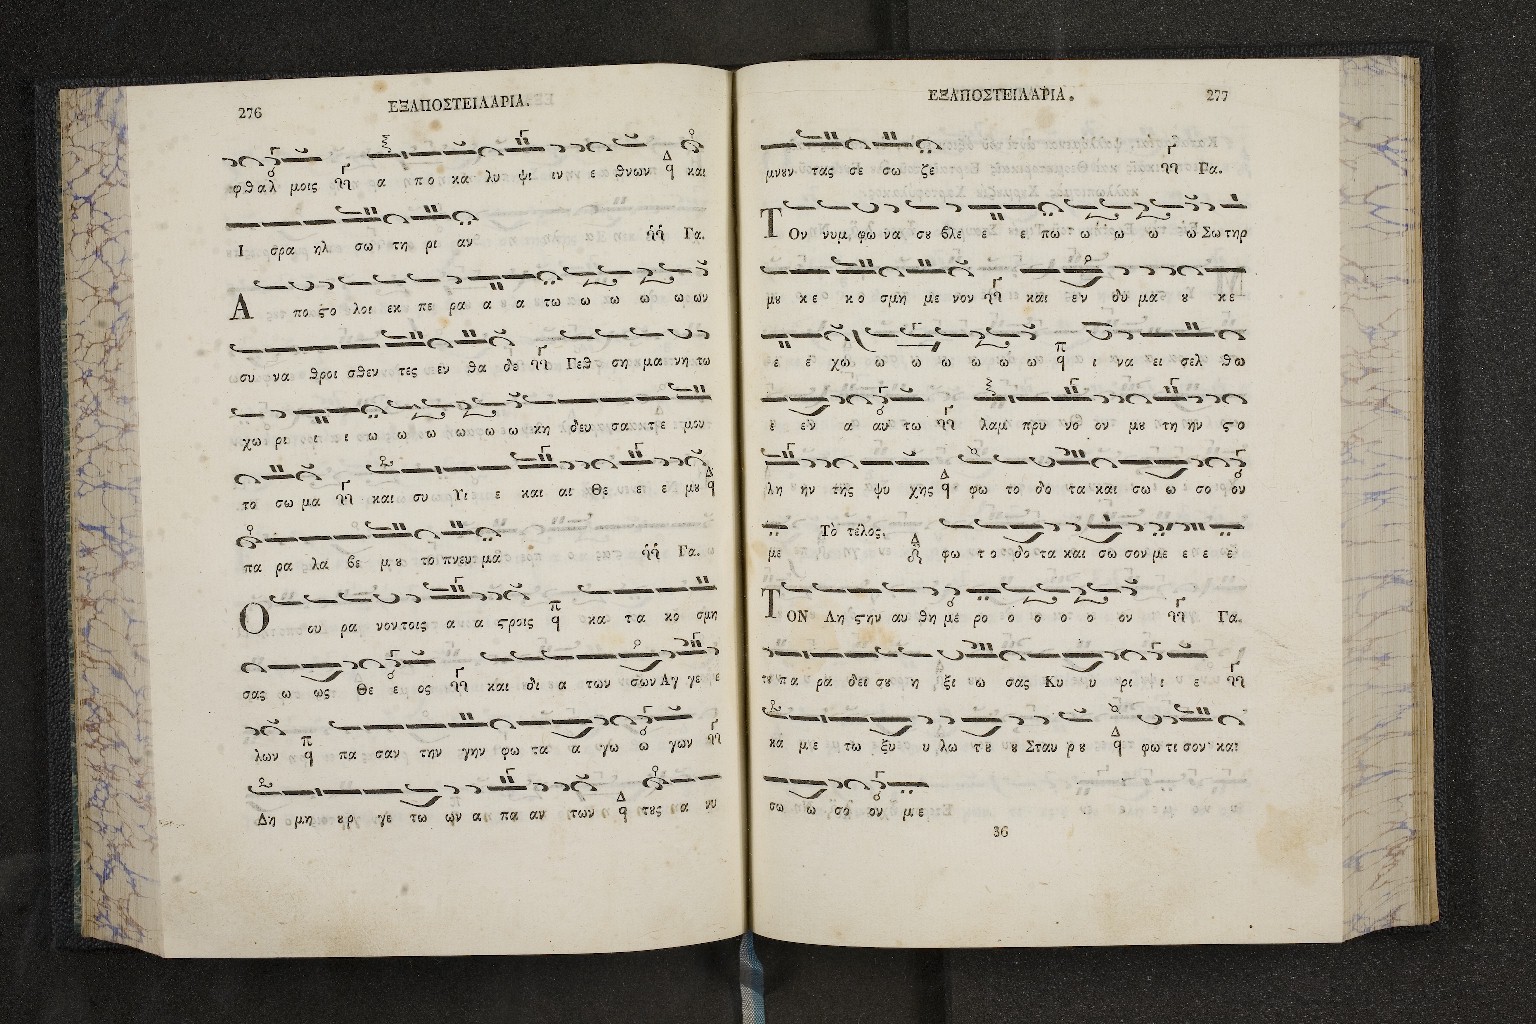 276
ΕΞΑΠΟΣΤΕΙΛΑΡΙΑ.
φθαλ μοις α πο κα λυ ψι ιν ε θνων και
Ι σρα ηλ σω τη ρι αν Γα.
Α πο ϛο λοι εκ πε ρα α α τω ω ω ω ω ων
συ να θροι σθεν τες εν θα δε Γεθ ση μα νη τω
χω ρι ι ι ω ω ω ω ω ω κη δευ σα τε μου
το σω μα και συ Υι ε και αι Θε ε ε μȣ
πα ρα λα βε μ ȣ το πνευ μα Γα.
Ο ου ρα νον τοις α α ϛροις κα τα κο σμη
σας ω ως Θε ε ος και δι α των σων Αγ γε ε
λων πα σαν την γην φω τα α γω ω γων
Δη μη ȣρ γε τω ων α πα αν των τȣς α νυ
277
ΕΞΑΠΟΣΤΕΙΛΑΡΙΑ.
μνȣν τας σε σω ζε Γα.
Τ Ον νυμ φω να σȣ βλε ε ε πω ω ω ω ω Σω τηρ
μȣ κε κο σμη με νον και εν δυ μα ȣ κε
ε ε χω ω ω ω ω ω ω ι να ει σελ θω
ε εν α αυ τω λαμ πρυ νο ον μȣ τη ην ϛο
λη ην της ψυ χης φω το δο τα και σω ω σο ον
με Τὸ τέλος. φω το δο τα και σω σον με ε ε ε
Τ ΟΝ Λη ϛην αυ θη με ρο ο ο ο ο ον Γα.
τȣ πα ρα δει σȣ η ξι ω σας Κυ υ ρι ι ε
κα με τω ξυ υ λω τȣ ȣ Σταυ ρȣ φω τι σον και
σω ω σο ον με
36